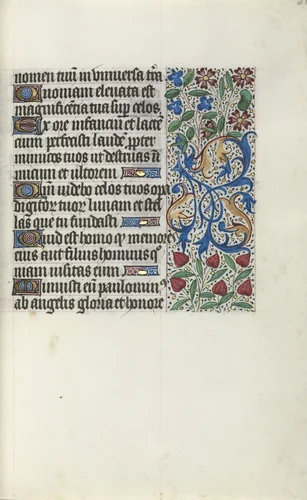 nomen tuū in vniversa tr̄a
Quoniam elevata est
magnificēcia tua sup̲ celos
Ex ore infanciū et lactēt
cium perfecisti laudē p̲pter
inimicos tuos ut destruas ī
imicum et ultorem
Qm̄ videbo celos tuos opa
digitor̄ tuor̄ lunam et stel
las que tu fundasti
Quid est homo q̲ memor es
eius aut filius hominis q̄
niam visitas eum
Minuisti eū paulominꝰ
ab angelis gloria et honore